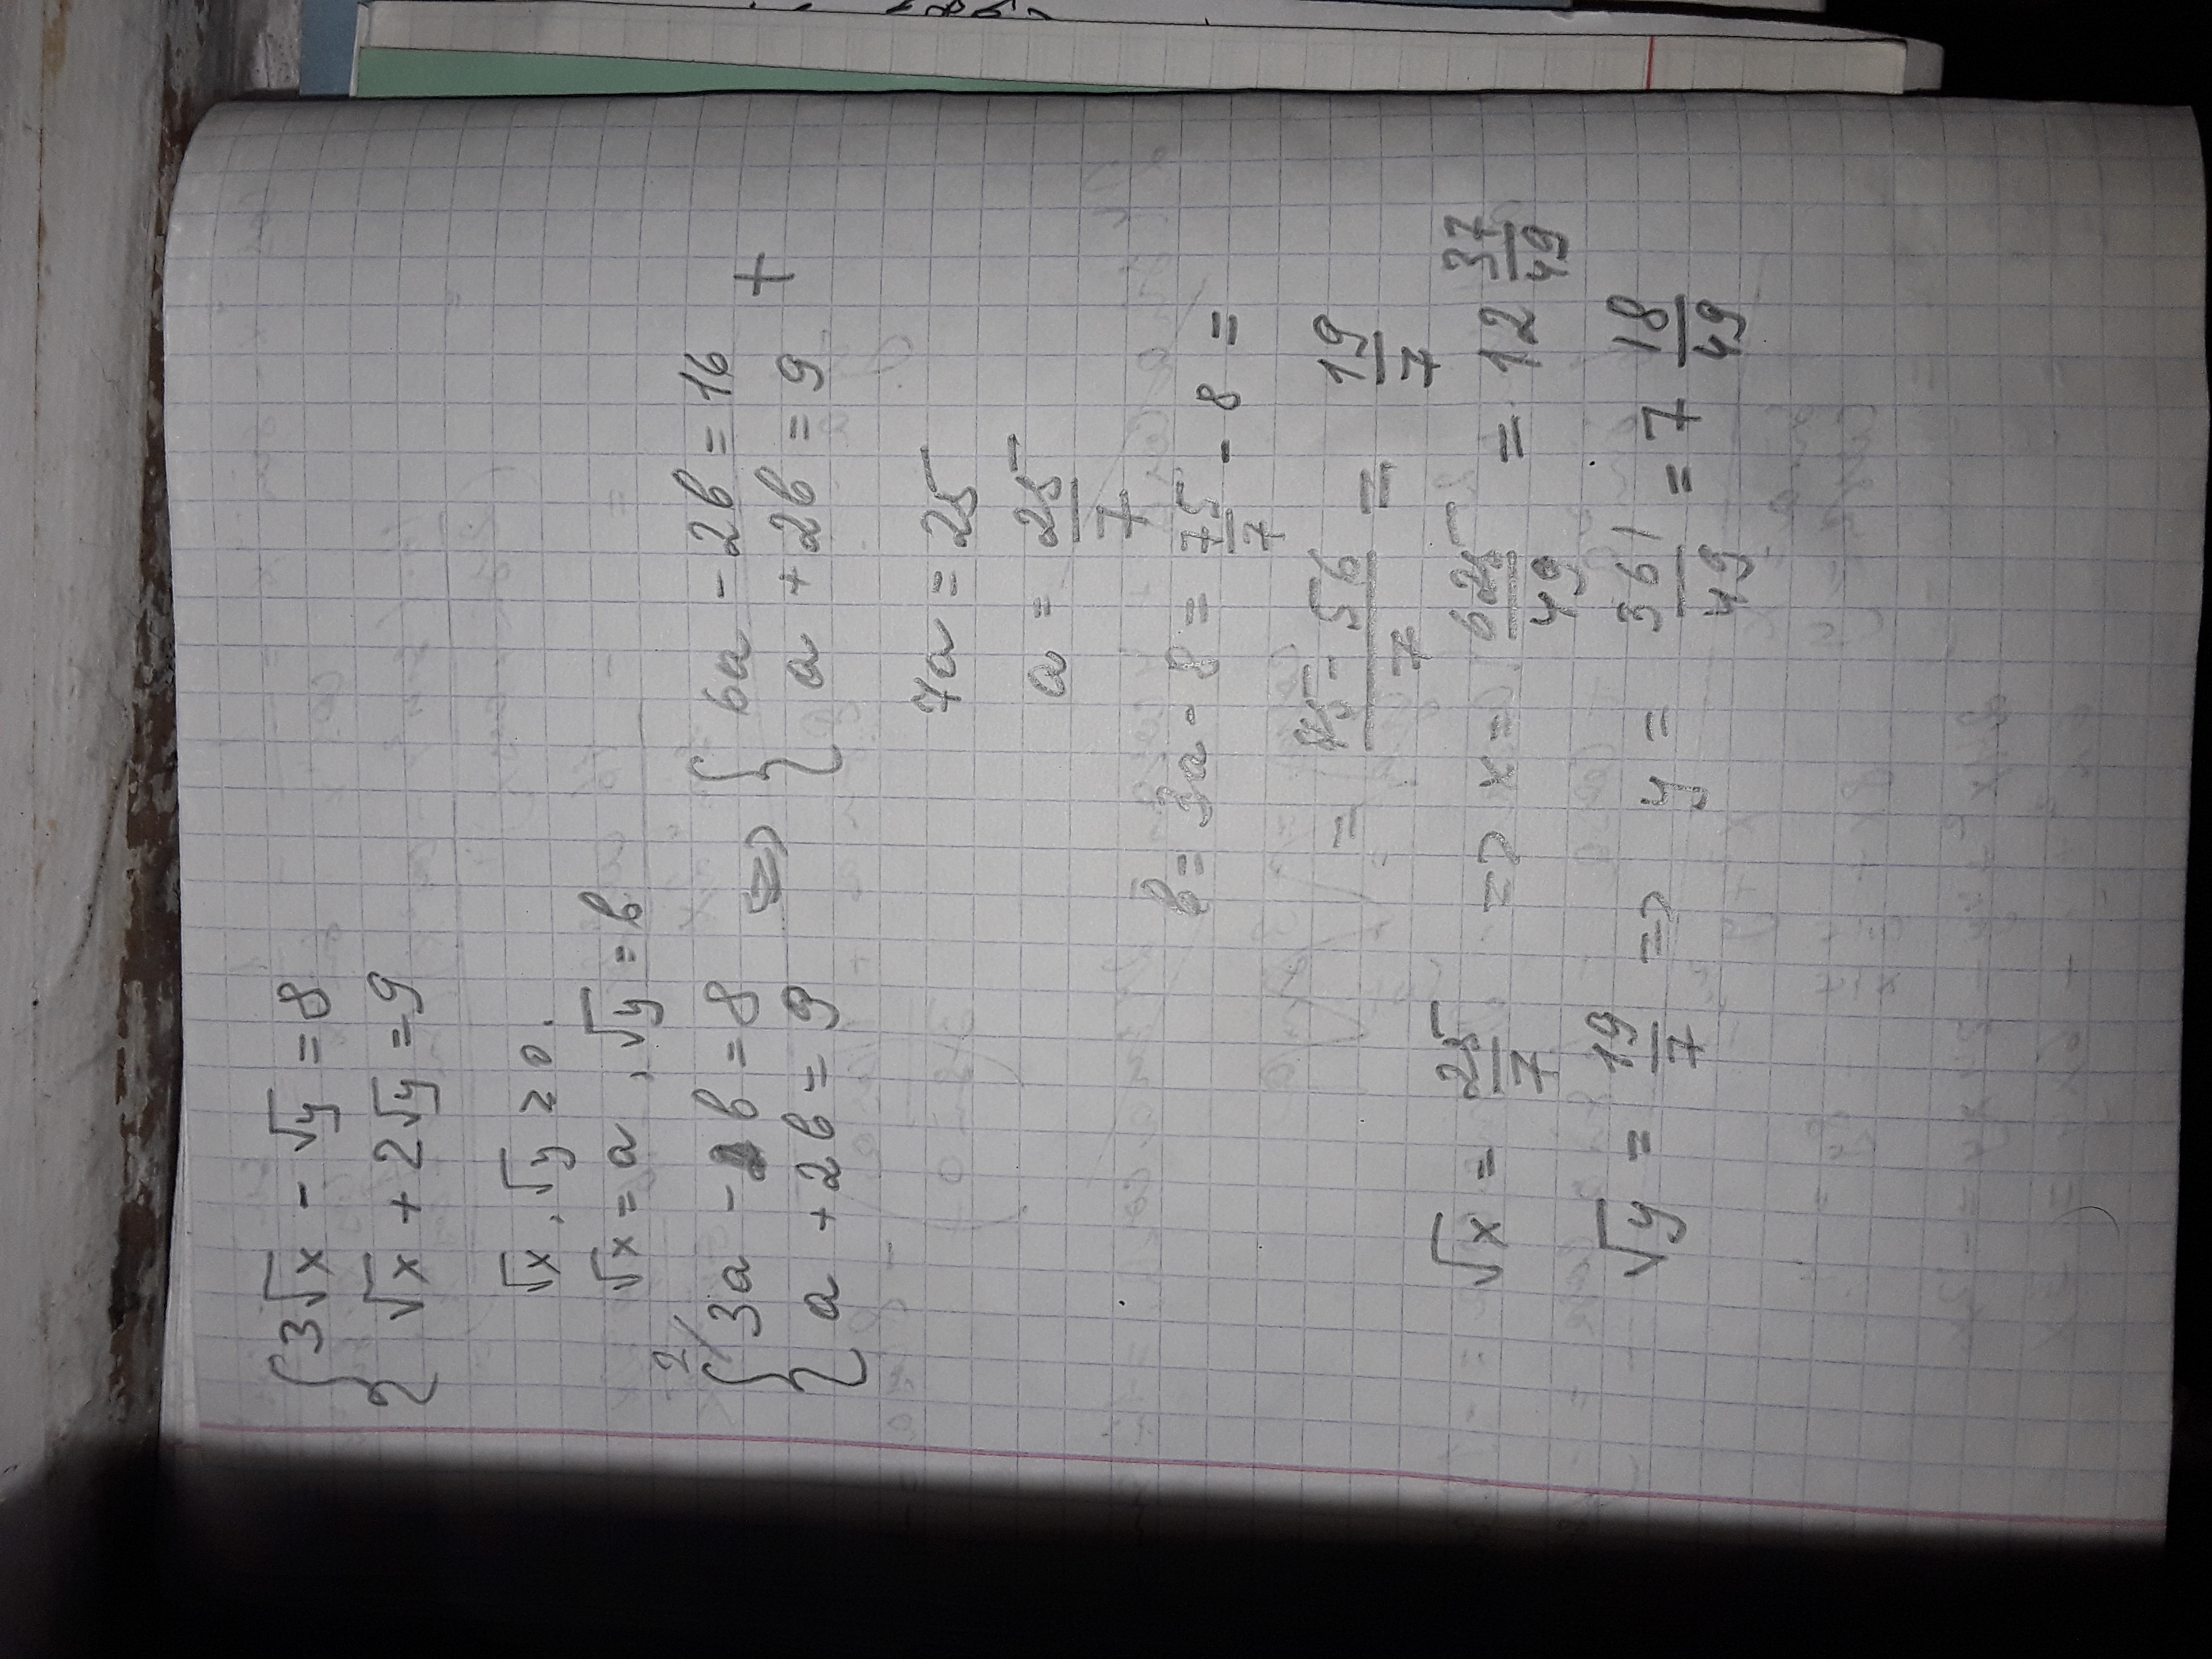 {3√x - √y = 8
√x + 2√y = 9
√x, √y ≥ 0.
√x = a, √y = b
2/ {3a - b = 8
a + 2b = 9
<=> {6a - 2b = 16
a + 2b = 9 +
7a = 25
a = 25/7
b = 3a - 8 = 75/7 - 8 =
= 75 - 56/7 = 19/7
√x = 25/7 => x = 625/49 = 12 37/49
√y = 19/7 => y = 361/49 = 7 18/49